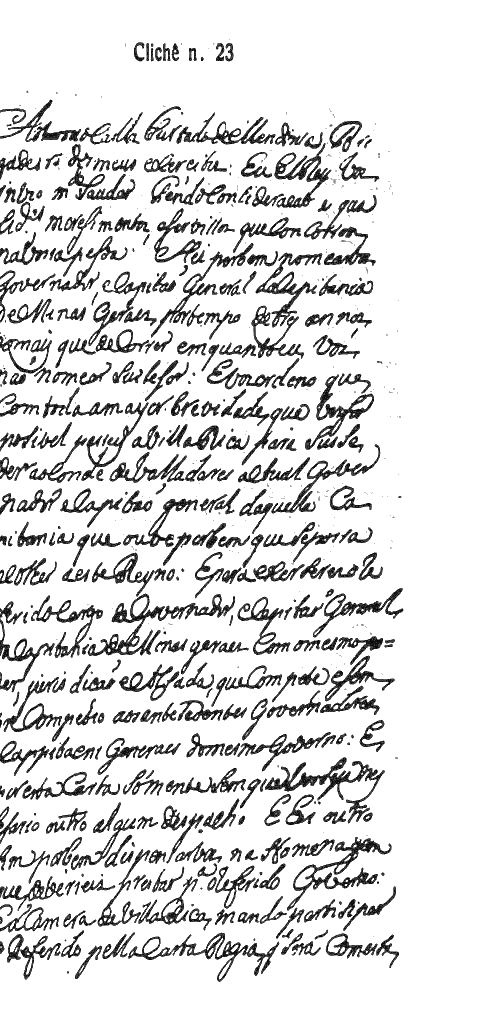 Clichê n. 23
Antonio Carlos Furtado de Mendonça, Bri
gadeiro dos meus exercitos: Eu ElRey vos
invio m.to Saudar. Tendo Consideração a qua
lid.e, meresimentos, e servissos que Concorrem
na vossa pessoa: Hei por bem nomearvos
Governador e Capitaó General da Capitania
de Minas Geraes, por tempo de tres annos,
e o mais que de Correr em quanto eu, vos
naó nomear Sucesor: E vos ordeno que
Com toda a mayor brevidade, que vos for
posivel a Villa Rica para Suse
der ao Conde de Valladares actual Gover
nador e Capitaó general daquella Ca
pitania que ouve por bem que se posa
recolher a este Reyno: E para exerseres o re
ferido Cargo de Governador, e Capitaó General,
da Capitania de Minas geraes Com o mesmo po=
der, jurisdicaó e alsada, que Compete e sem
pre Competio aos antesedentes Governadores,
e Cappitaens Generaes do mesmo Governo: E,
Carta Sómente sem que
sesario outro algum despacho. E Eu outro
sim por bem dispensarvos, na Homenagem
que, deverieis prestar p.a o referido Governo:
E á Camera de Villa Rica, mando partisipar
o Referido pella Carta Regia, q' Será Com esta,